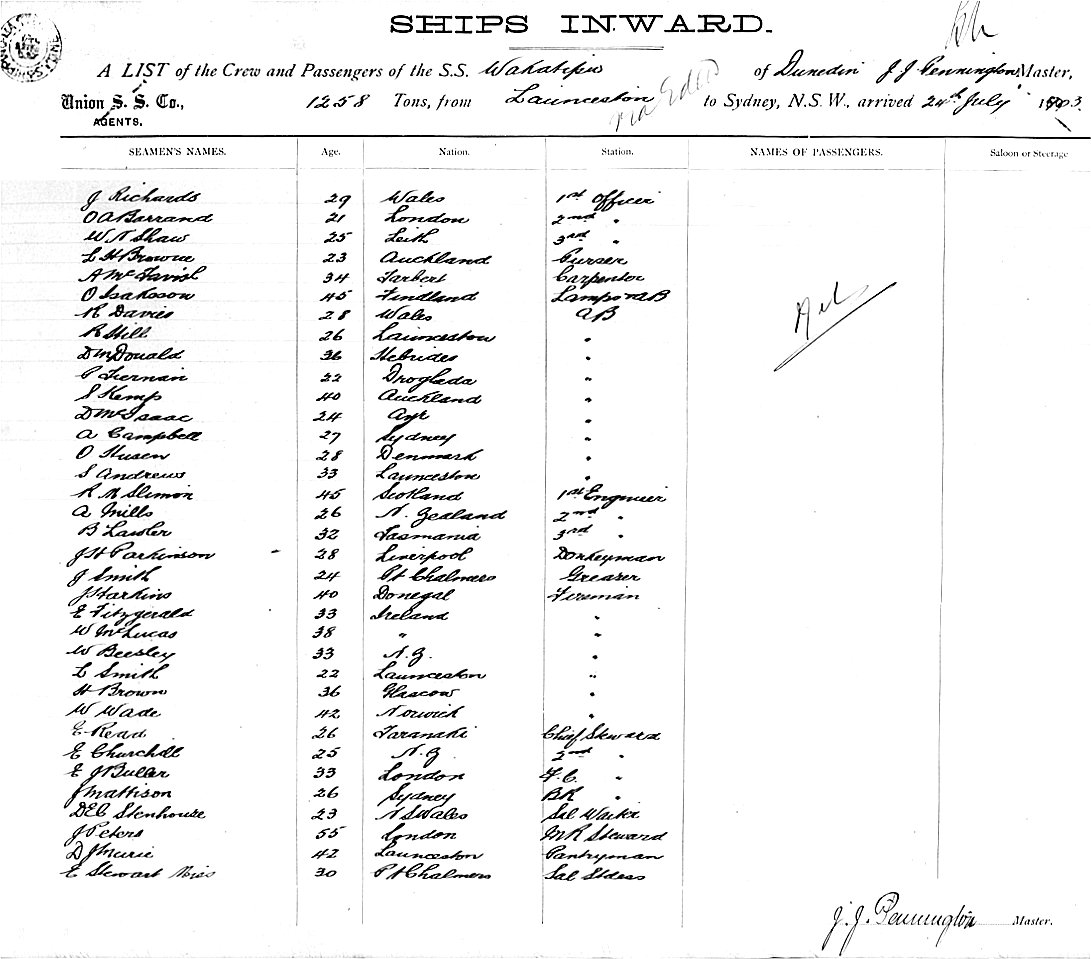 SHIPS INWARD.
A LIST of the Crew and Passengers of the S.S. Wakatipu of Dunedin J J Pennington Master,
Union S. S. Co., 1258 Tons, from Launceston via Eden to Sydney, N.S.W., arrived 24th July 3.
AGENTS.
SEAMEN'S NAMES. Age. Nation. Station. NAMES OF PASSENGERS. Saloon or Steerage
J Richards 29 Wales 1st Officer
O A Barrand 21 London 2nd "
W N Shaw 25 Leith 3rd "
L H Browne 23 Auckland Purser
A McTavish 34 Tarbert Carpenter
O Isaksson 45 Findland Lamps & AB
R Davies 28 Wales AB
R Hill 26 Launceston "
D McDonald 36 Hebrides "
P Tiernan 22 Drogheda "
S Kemp 40 Auckland "
D McIsaac 24 Ayr "
A Campbell 27 Sydney "
O Husen 28 Denmark "
S Andrews 33 Launceston "
R M Slimon 45 Scotland 1st Engineer
A Mills 26 N. Zealand 2nd "
B Lawler 32 Tasmania 3rd "
J H Parkinson 28 Liverpool Donkeyman
J Smith 24 Pt Chalmers Greaser
J Harkins 40 Donegal Fireman
E Fitzgerald 33 Ireland "
W McLucas 38 " "
W Beesley 33 N.Z. "
L Smith 22 Launceston "
H Brown 36 Glascow "
W Wade 42 Norwich "
E Read 26 Taranaki Chief Steward
E Churchill 25 N.Z 2nd "
E J Buller 33 London F.C. "
J Mattison 26 Sydney BK "
D E C Stenhouse 23 N S Wales Sal Waiter
J Peters 55 London M R Steward
D J Murie 42 Launceston Pantryman
E Stewart Miss 30 Pt Chalmers Sal Stdess
Nil
J. J. Pennington Master.